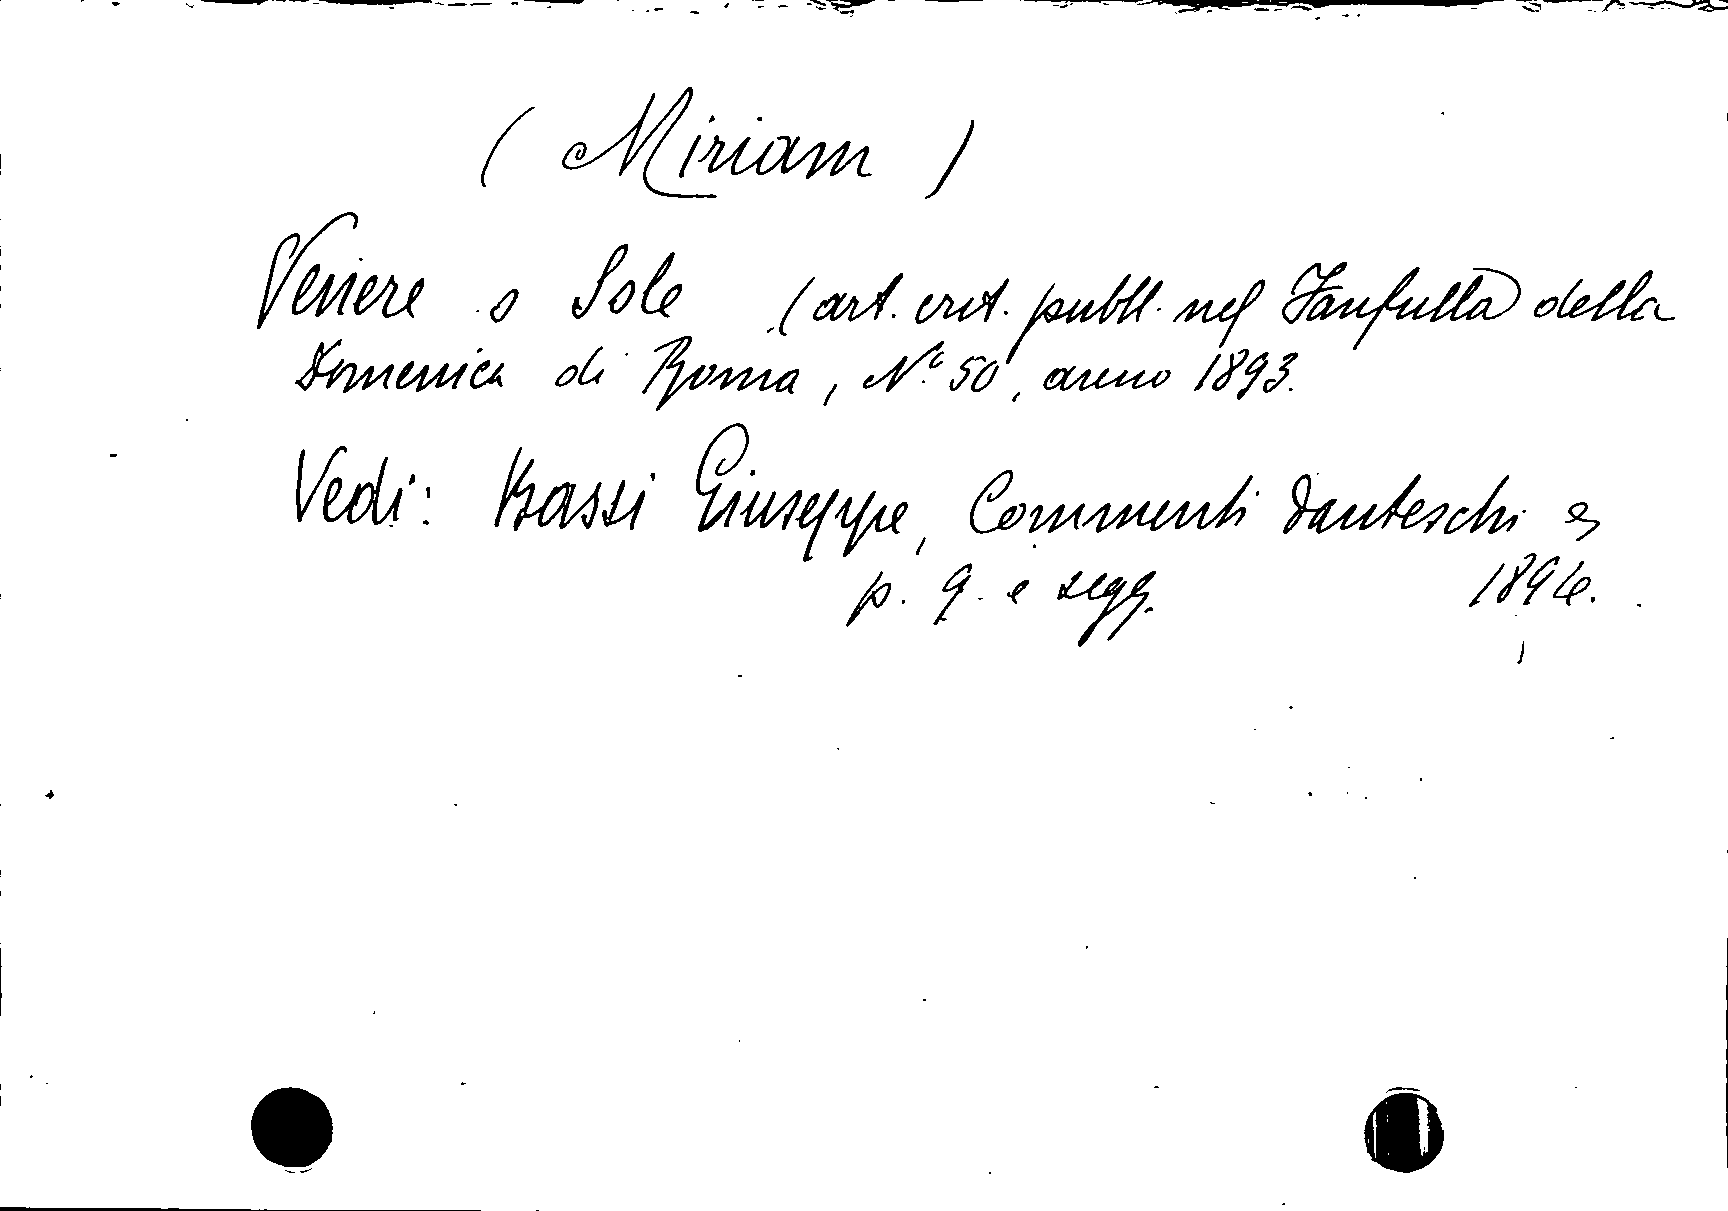 ( Miriam )
Venere o Sole (art. crit. pubbl. nel Fanfulla della
Domenica di Roma, N.o 50, anno 1893.
Vedi: Bassi Giuseppe, Commenti danteschi
p. 9. e segg. 1894.